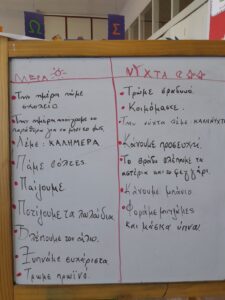 Ω Σ
ΜΕΡΑ
Την μέρα πάμε
σχολείο
Την ημέρα ανοίγουμε τα
παράθυρα για να μπαίνει φως.
Λέμε: ΚΑΛΗΜΕΡΑ
Πάμε βόλτες
Παίζουμε
Ποτίζουμε τα λουλούδια.
Βλέπουμε τον ήλιο.
Ξυπνάμε ευχάριστα.
Τρώμε πρωινό.
ΝΥΧΤΑ
Τρώμε βραδινό.
Κοιμόμαστε.
Την νύχτα λέμε ΚΑΛΗΝΥΧΤΑ
Κάνουμε προσευχή.
Το βράδυ βλέπουμε τα
αστέρια και το φεγγάρι.
Κάνουμε μπάνιο.
Φοράμε πιτζάμες
και μάσκα ύπνου!